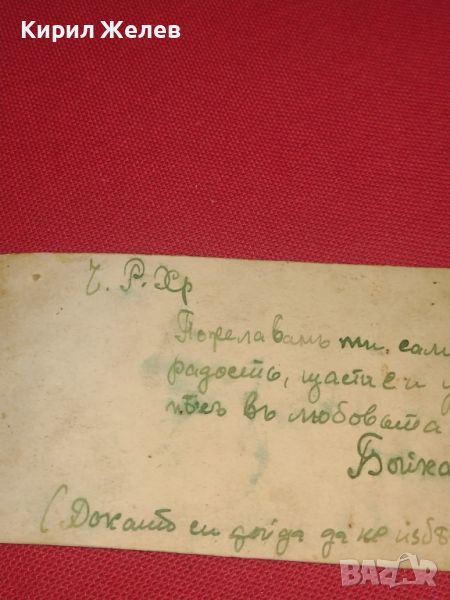 Кирил Желев
Ч. Р. Хр
Пожелавамъ ти сами
радость, щастие и у
пѣхъ въ любовьта
Бойка
(Докато си дойда да не избѣ
BAZAR